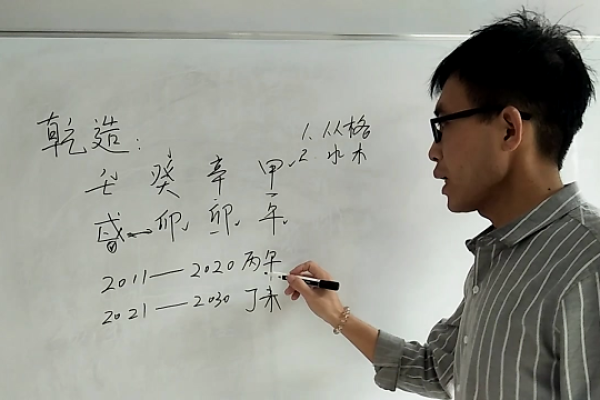 乾造:
壬 癸 辛 甲
戌 卯 卯 午
1. 从格
2. 水木
2011—2020 丙午
2021—2030 丁未